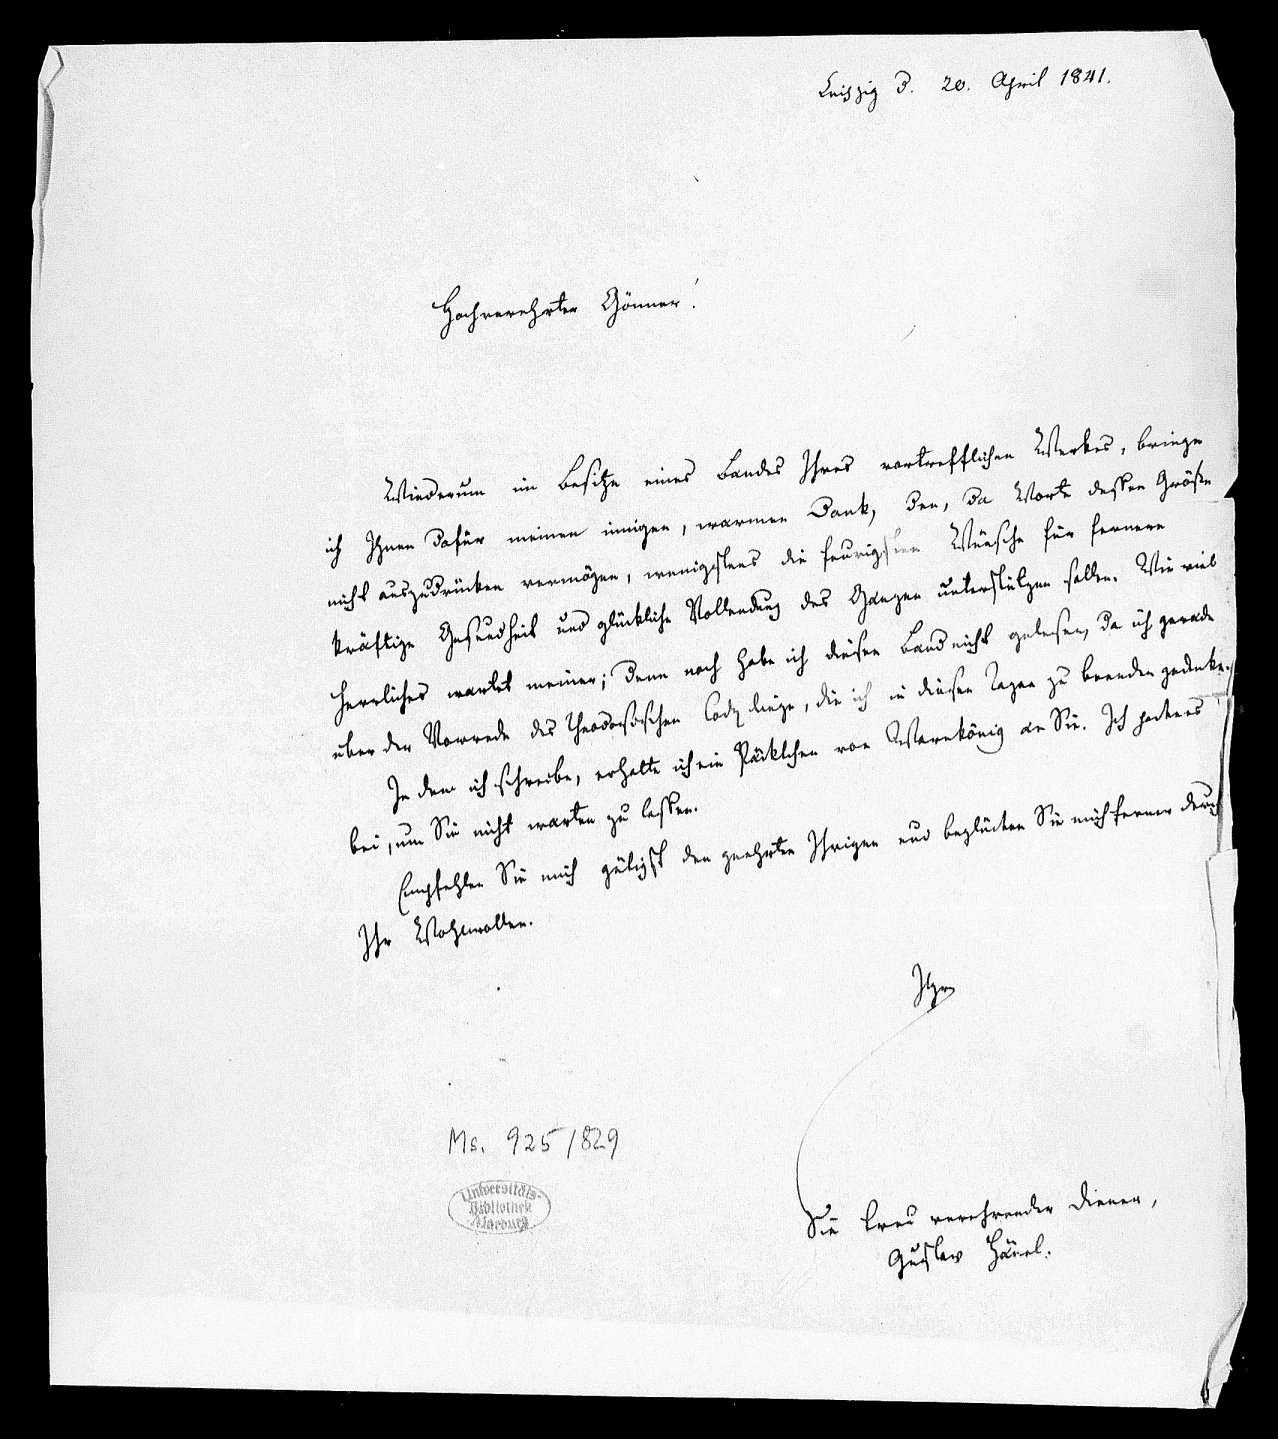 Leipzig d. 20. April 1841.
Hochverehrter Gönner!
Wiederum im Besitze eines Bandes Ihres vortrefflichen Werkes, bringe
ich Ihnen dafür meinen innigen, warmen Dank, den, da Worte dessen Größe
nicht auszudrücken vermögen, wenigstens die feurigsten Wünsche für fernere
kräftige Gesundheit und glückliche Vollendung des Ganzen unterstützen sollen. Wie viel
Herrliches wartet meiner; denn noch habe ich diesen Band nicht gelesen, da ich gerade
über der Vorrede des Theodosischen Cod. liege, die ich in diesen Tagen zu beenden gedenke.
In dem ich schreibe, erhalte ich ein Päcktchen von Warnkönig an Sie. Ich packe es
bei, um Sie nicht warten zu lassen.
Empfehlen Sie mich gütigst den geehrten Ihrigen und beglücken Sie mich ferner durch
Ihr Wohlwollen.
Ihr
Sie treu verehrender Diener,
Gustav Hänel.
Ms. 925/829
Universitäts-
Bibliothek
Marburg